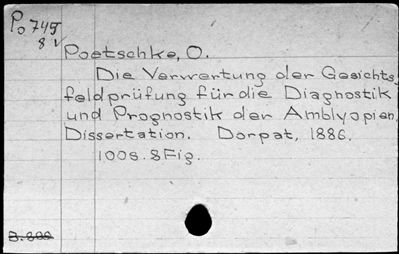 Po 749
8
Poetschke, O.
Die Verwertung der Gesichts-
feldprüfung für die Diagnostik
und Prognostik der Amblyopien.
Dissertation. Dorpat, 1886.
100s. 8Fig.